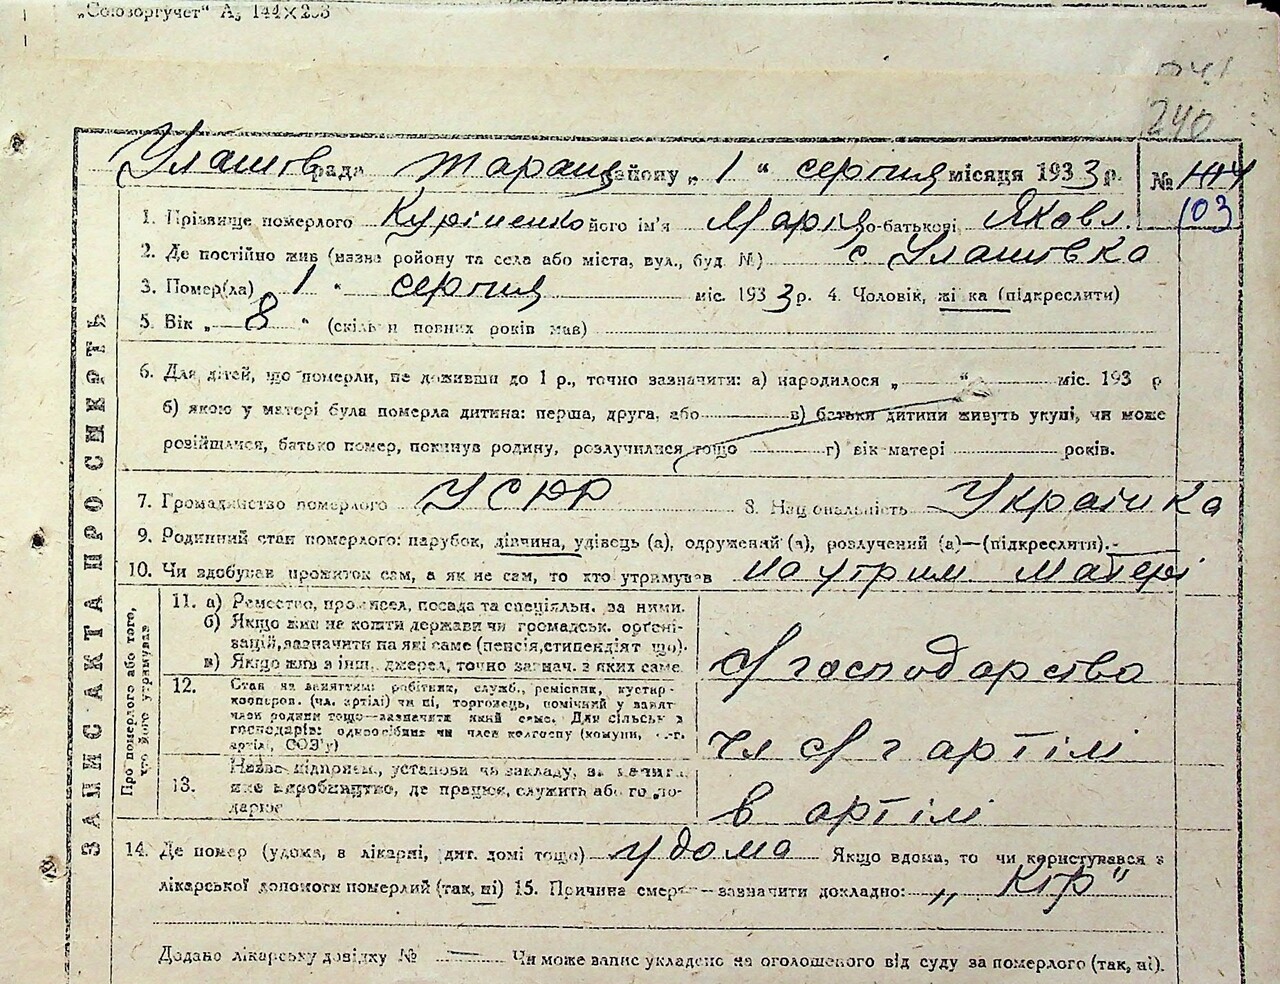 „Союзоргучет" А5 144×203
240
Улашів рада Таращ району „ 1 " серпня місяця 1933 р. №
103
1. Прізвище померлого Куріненко його ім'я Марія по-батькові Яковл.
2. Де постійно жив (назва ройону та села або міста, вул., буд. №) с. Улашівка
3. Помер(ла) 1 " серпня міс. 1933 р. 4. Чоловік, жінка (підкреслити)
5. Вік „ 8 " (скільки повних років мав)
6. Для дітей, що померли, не доживши до 1 р., точно зазначити: а) народилося „ " міс. 193 р
б) якою у матері була померла дитина: перша, друга, або в) батьки дитини живуть укупі, чи може
розійшлися, батько помер, покинув родину, розлучилися тощо г) вік матері років.
7. Громадянство померлого УСРР 8. Національність Українка
9. Родинний стан померлого: парубок, дівчина, удівець (а), одружений (а), розлучений (а)—(підкреслити).
10. Чи здобував прожиток сам, а як не сам, то хто утримував на утрим. матері
ЗАПИС АКТА ПРО СМЕРТЬ
Про померлого або того, хто його утримував
11. а) Ремество, промисел, посада та спеціяльн. за ними.
б) Якщо жив на кошти держави чи громадськ. орґені-
зацій, зазначити на які саме (пенсія, стипендіят що).
в) Якщо жив з інш. джерел, точно зазнач. з яких саме.
с/господарства
12. Стан як заняттям: робітник, служб., ремісник, кустар-
кооперов. (чл. артілі) чи ні, торговець, помічний у занят-
тях родини тощо—зазначити який саме. Для сільськ х
господарів: одноосібник чи член колгоспу (комуни, с.-г.
артілі, СОЗ'у)
чл с/г артілі
13. Назва підприєм., установи чи закладу, за
яке виробництво, де працює, служить або го „по-
дарює
в артілі
14. Де помер (удома, в лікарні, дит. домі тощо) удома Якщо вдома, то чи користувався з
лікарської допомоги померлий (так, ні) 15. Причина смерти—зазначити докладно: „ Кір"
Додано лікарську довідку № — Чи може запис укладено на оголошеного від суду за померлого (так, ні).